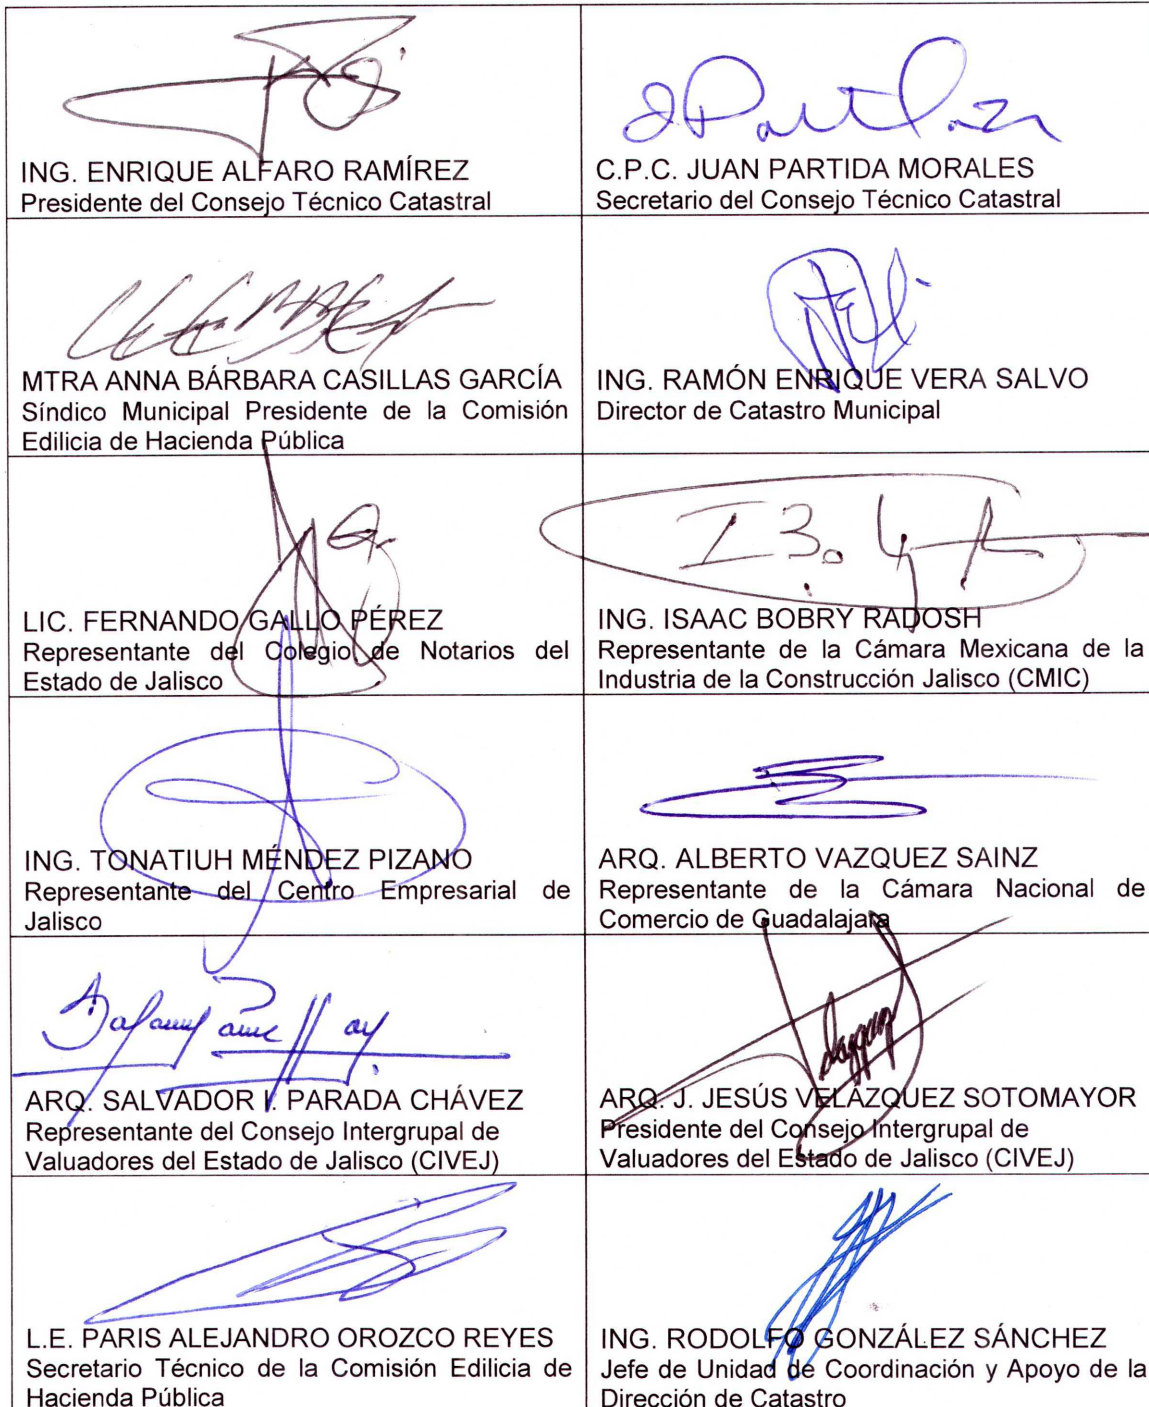 ING. ENRIQUE ALFARO RAMÍREZ
Presidente del Consejo Técnico Catastral
C.P.C. JUAN PARTIDA MORALES
Secretario del Consejo Técnico Catastral
MTRA ANNA BÁRBARA CASILLAS GARCÍA
Síndico Municipal Presidente de la Comisión
Edilicia de Hacienda Pública
ING. RAMÓN ENRIQUE VERA SALVO
Director de Catastro Municipal
LIC. FERNANDO GALLO PÉREZ
Representante del Colegio de Notarios del
Estado de Jalisco
ING. ISAAC BOBRY RADOSH
Representante de la Cámara Mexicana de la
Industria de la Construcción Jalisco (CMIC)
ING. TONATIUH MÉNDEZ PIZANO
Representante del Centro Empresarial de
Jalisco
ARQ. ALBERTO VAZQUEZ SAINZ
Representante de la Cámara Nacional de
Comercio de Guadalajara
ARQ. SALVADOR I. PARADA CHÁVEZ
Representante del Consejo Intergrupal de
Valuadores del Estado de Jalisco (CIVEJ)
ARQ. J. JESÚS VELÁZQUEZ SOTOMAYOR
Presidente del Consejo Intergrupal de
Valuadores del Estado de Jalisco (CIVEJ)
L.E. PARIS ALEJANDRO OROZCO REYES
Secretario Técnico de la Comisión Edilicia de
Hacienda Pública
ING. RODOLFO GONZÁLEZ SÁNCHEZ
Jefe de Unidad de Coordinación y Apoyo de la
Dirección de Catastro